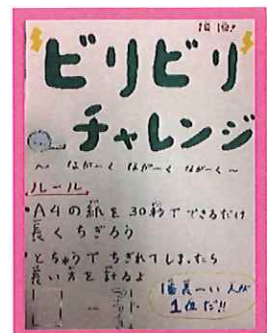 ビリビリ
チャレンジ
～ なが～く なが～く なが～く ～
ルール
・A4の紙を30秒でできるだけ
長くちぎろう
・とちゅうでちぎれてしまったら
長い方を計るよ
1番長〜い人が
1位だ!!